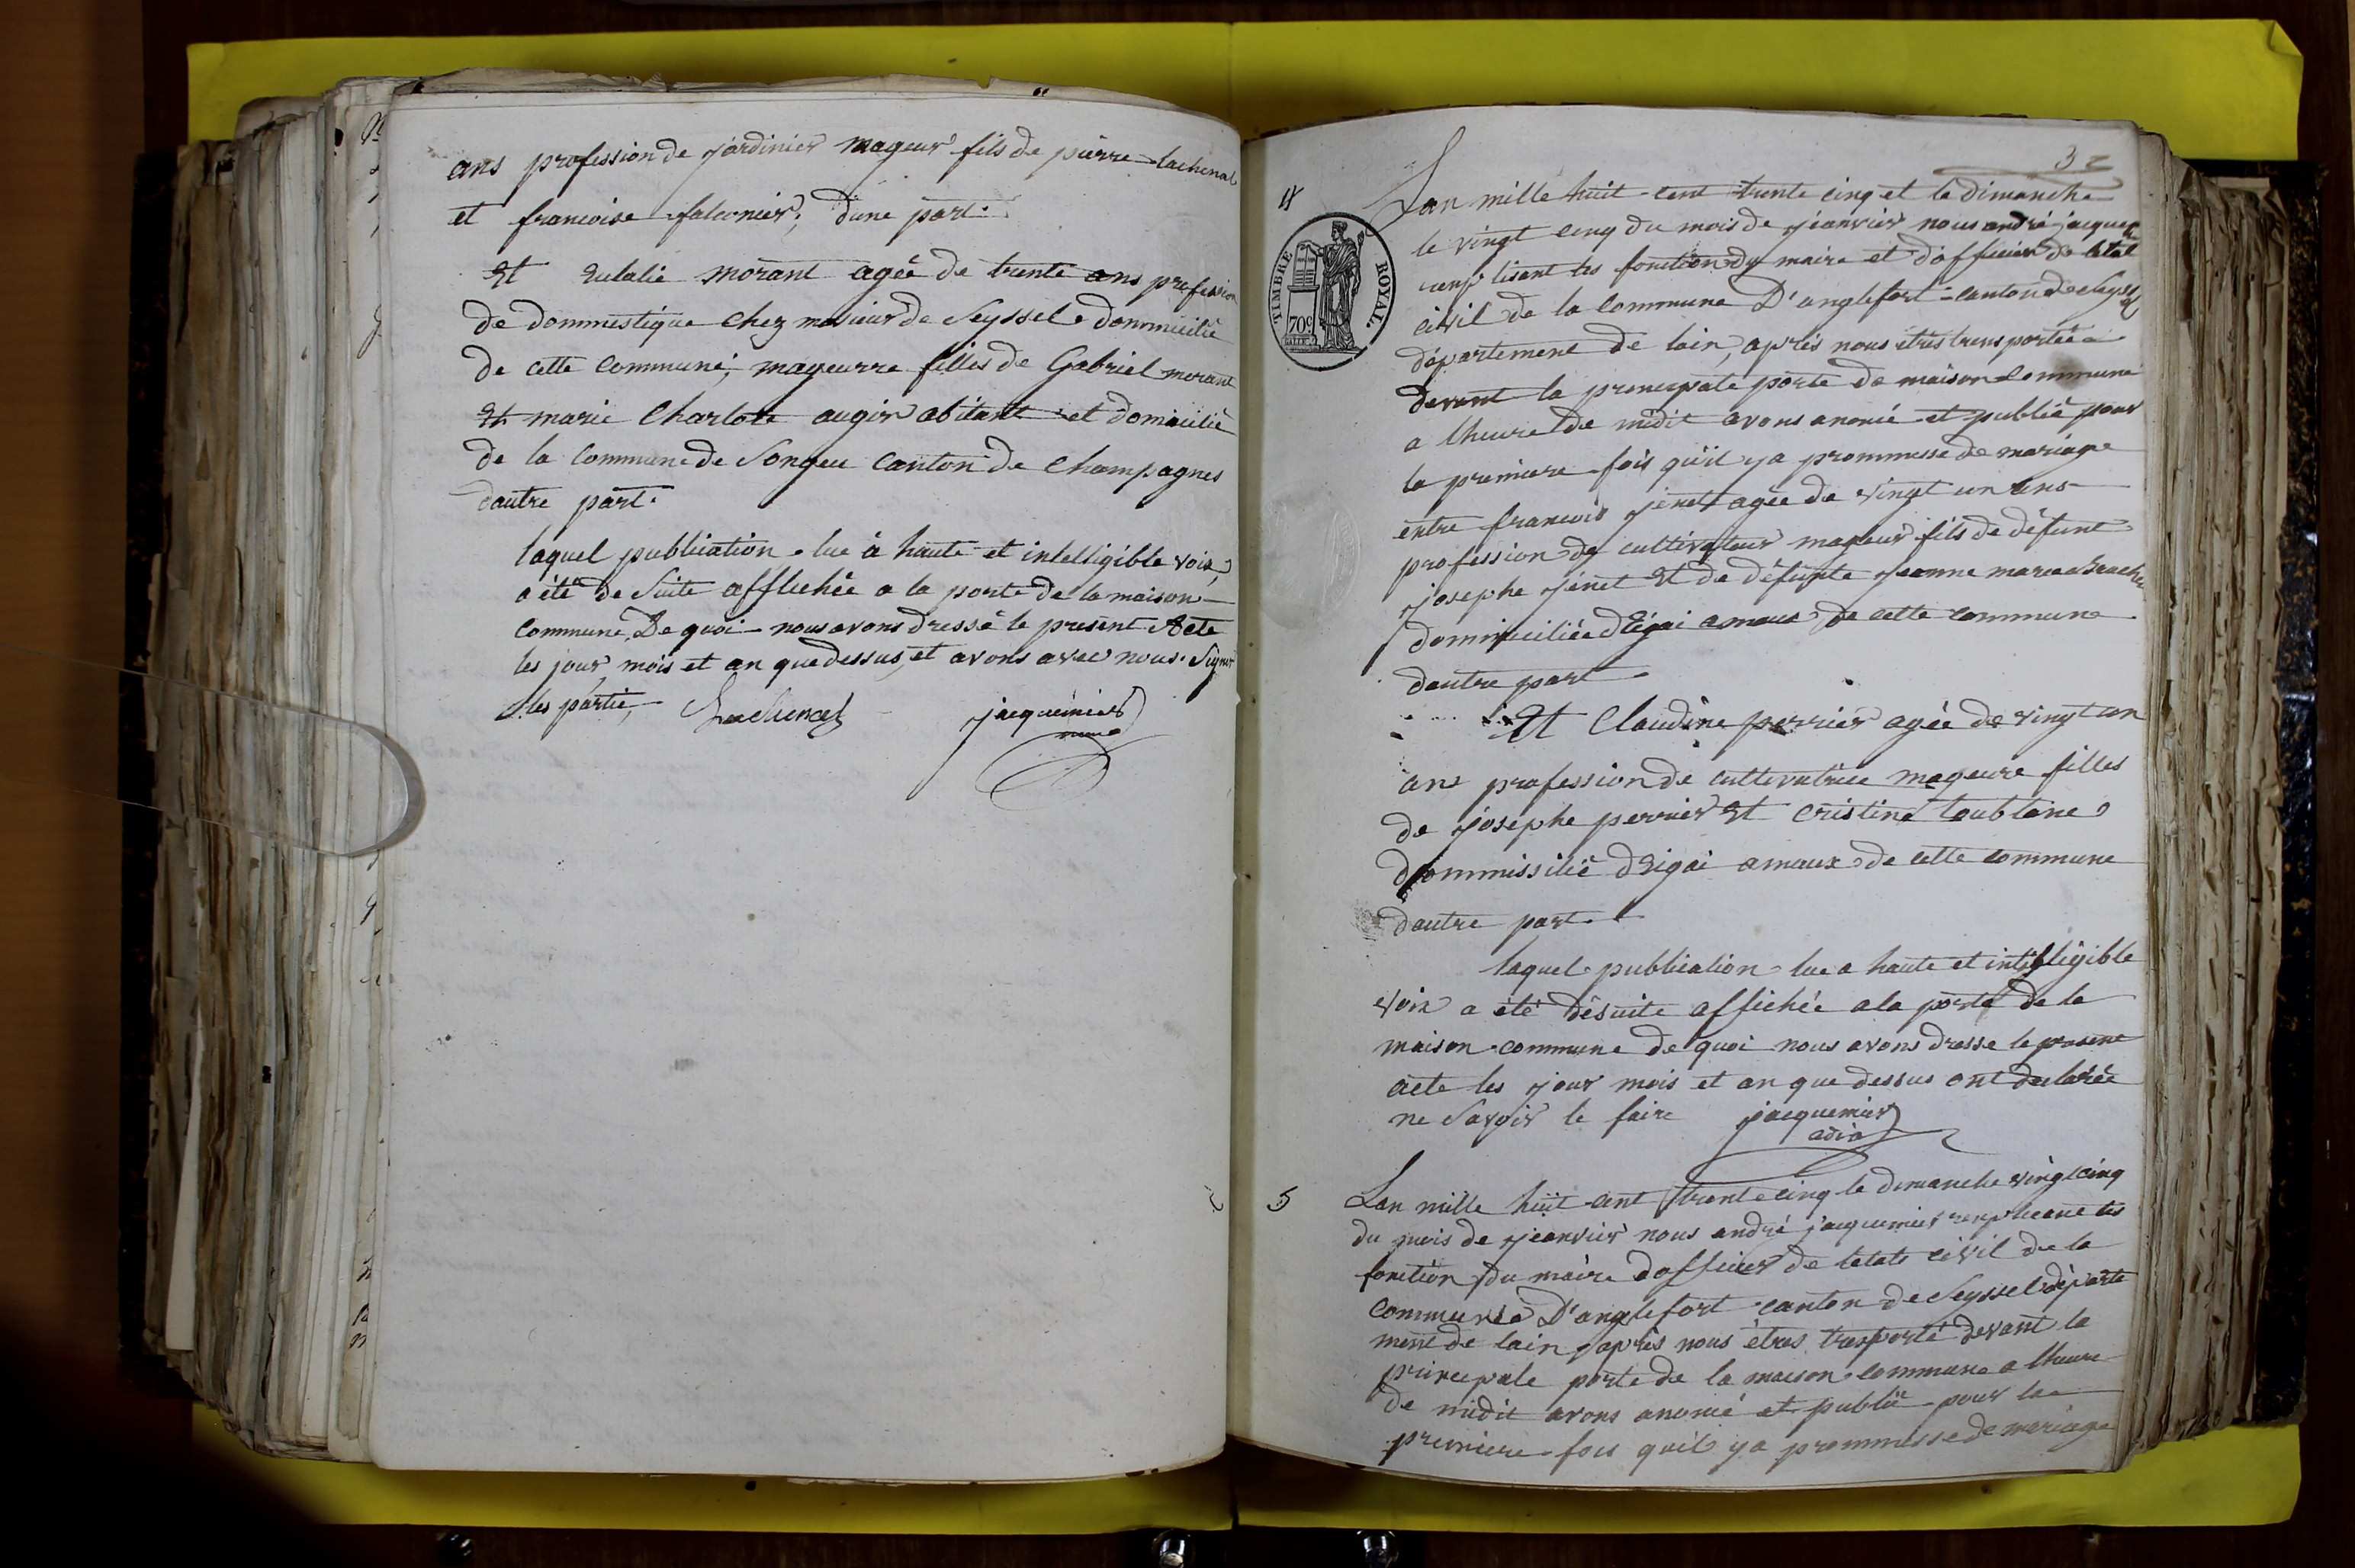 ans profession de jardinier mageur fils de pierre lachenal
et francoise falconier, dune part.
Et Eulalie morant agée de trente ans profession
de dommestique chez mosieur de Seyssel dommicilié
de cette commune, mageurre filles de Gabriel morant
Et marie Charlote augir abitant et domicilié
de la Commune de Songeu canton de Champagnes
dautre part.
laquel publication lue à haute et intelligible voix,
a été de Suite afflichée a la porte de la maison
commune, De quoi nous avons dressé le present Acte
les jour mois et an que dessus, et avons avec nous Signé
les partie, Lachenal jacquemier
3
4
Lan mille huit cent trente cinq et le dimanche
le vingt cinq du mois de jeanvier nous andré jacquem
les fonction du maire et d'officier de letat
civil de la commune D'anglefort canton de Seyssel
département de lain, après nous êtres transportée
devant la principale porte de maison Commune
a lheure de midit avons anonié et publié pour
la premiere fois quil ya prommesse de mariage
entre francois jenet agée de vingt un ans
profession de cultivateur mageur fils de défunt
josephe jenet Et de défunte jeanne marie
dommiciliée dEigai amaux de cette commune
dautre part
Et Claudine perrier agée de vingt un
ans profession de cultivatrice mageure filles
de josephe perrier Et Cristine Toublane
dommissilié dEigai amaux de cette commune
dautre part.
laquel publication lue a haute et intelligible
voix a été désuite affichée a la porte de la
maison commune de quoi nous avons dresse le present
acte les jour mois et an que dessus ont declarée
ne Savoir le faire jacquemier
adia
TIMBRE ROYAL
70c
5
Lan mille huit cent trente cinq le dimanche vingt cinq
du mois de jeanvier nous andré jacquemier les
fonction du maire dofficier de letats civil de la
commune D'anglefort canton de Seyssel départe
ment de lain, après nous êtres trasporté devant la
principale porte de la maison commune a lheure
de midit avons anonié et publié pour la
premiere fois quil ya prommesse de mariage